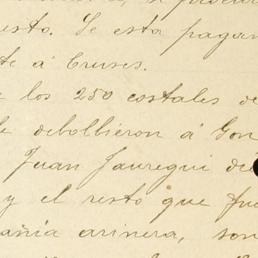 resto. Se esta pagan
te á Cruses.
los 250 costales de
debolbieron á Gon
Juan Jauregui de
y el resto que fue
añia arinera, son